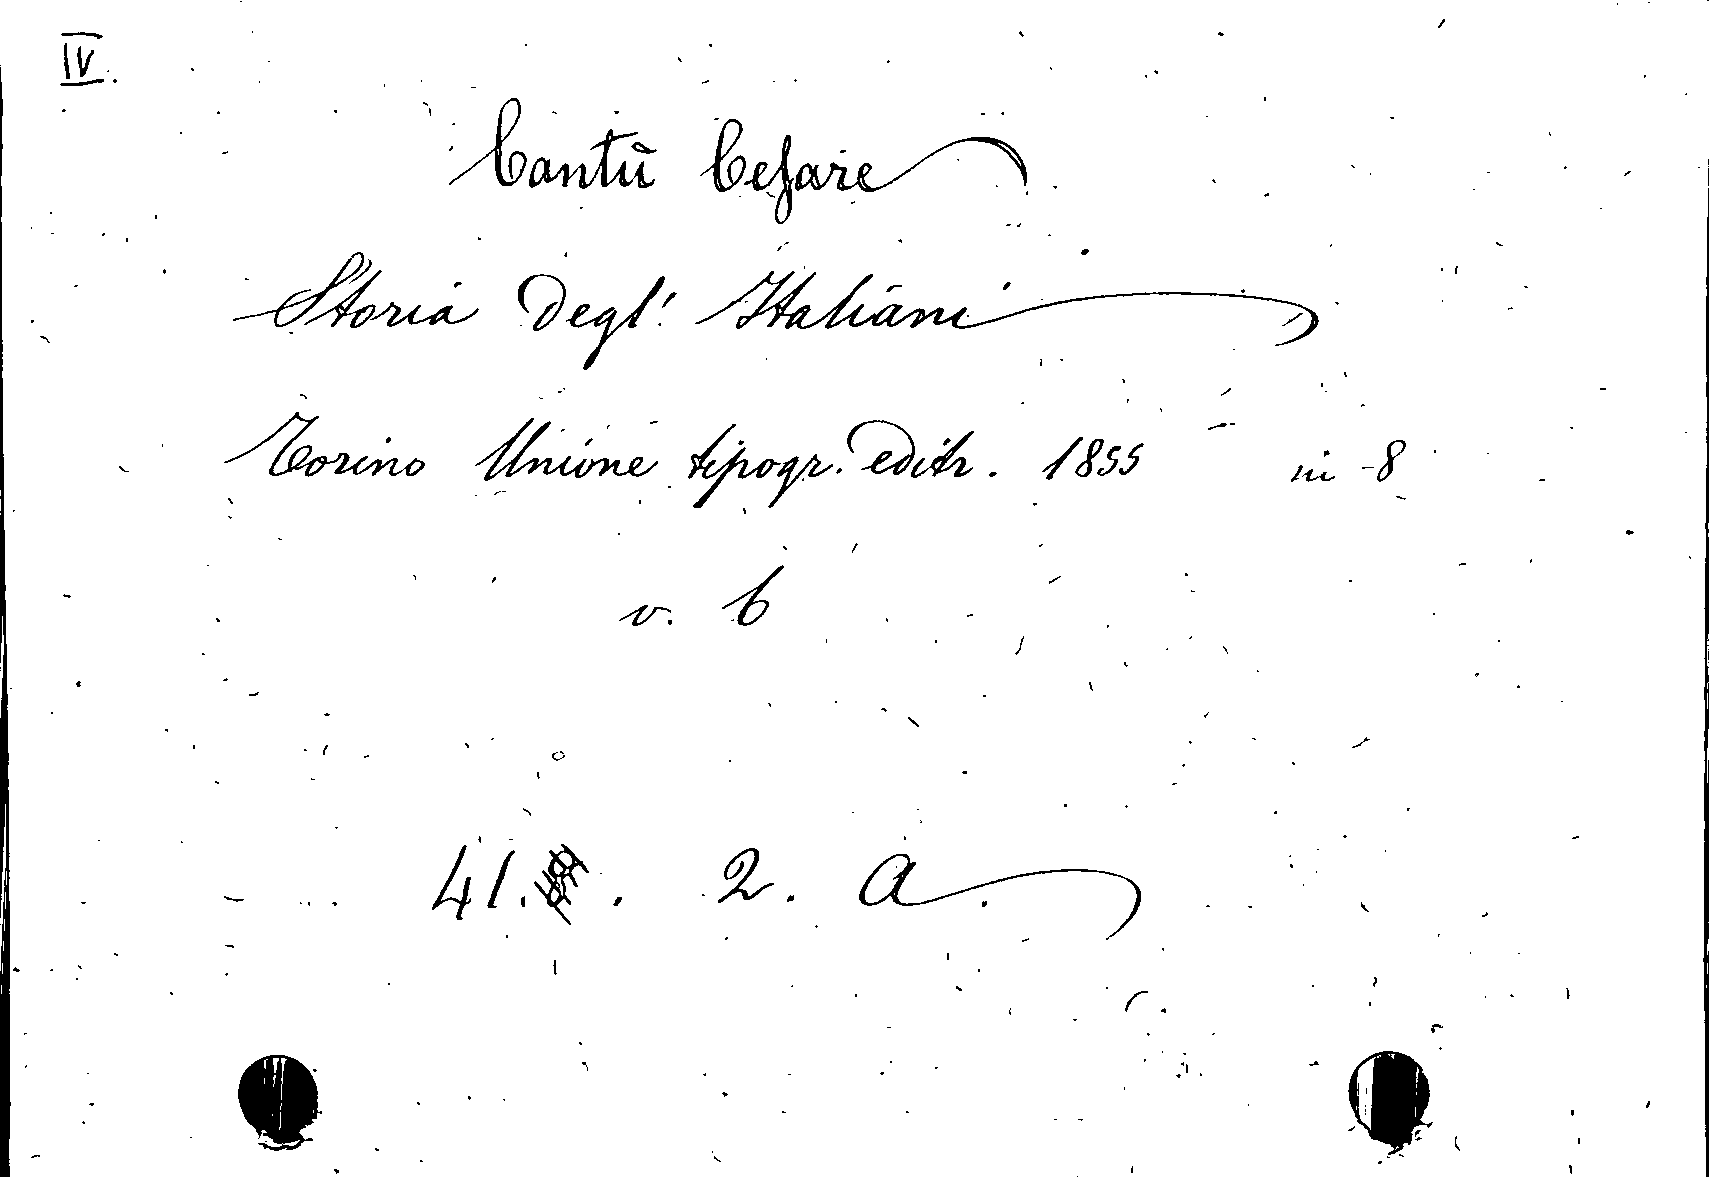 IV.
Cantù Cesare
Storia degl' Italiani
Torino Unione tipogr. editr. 1855 in -8
v. 6
41. . 2. a.